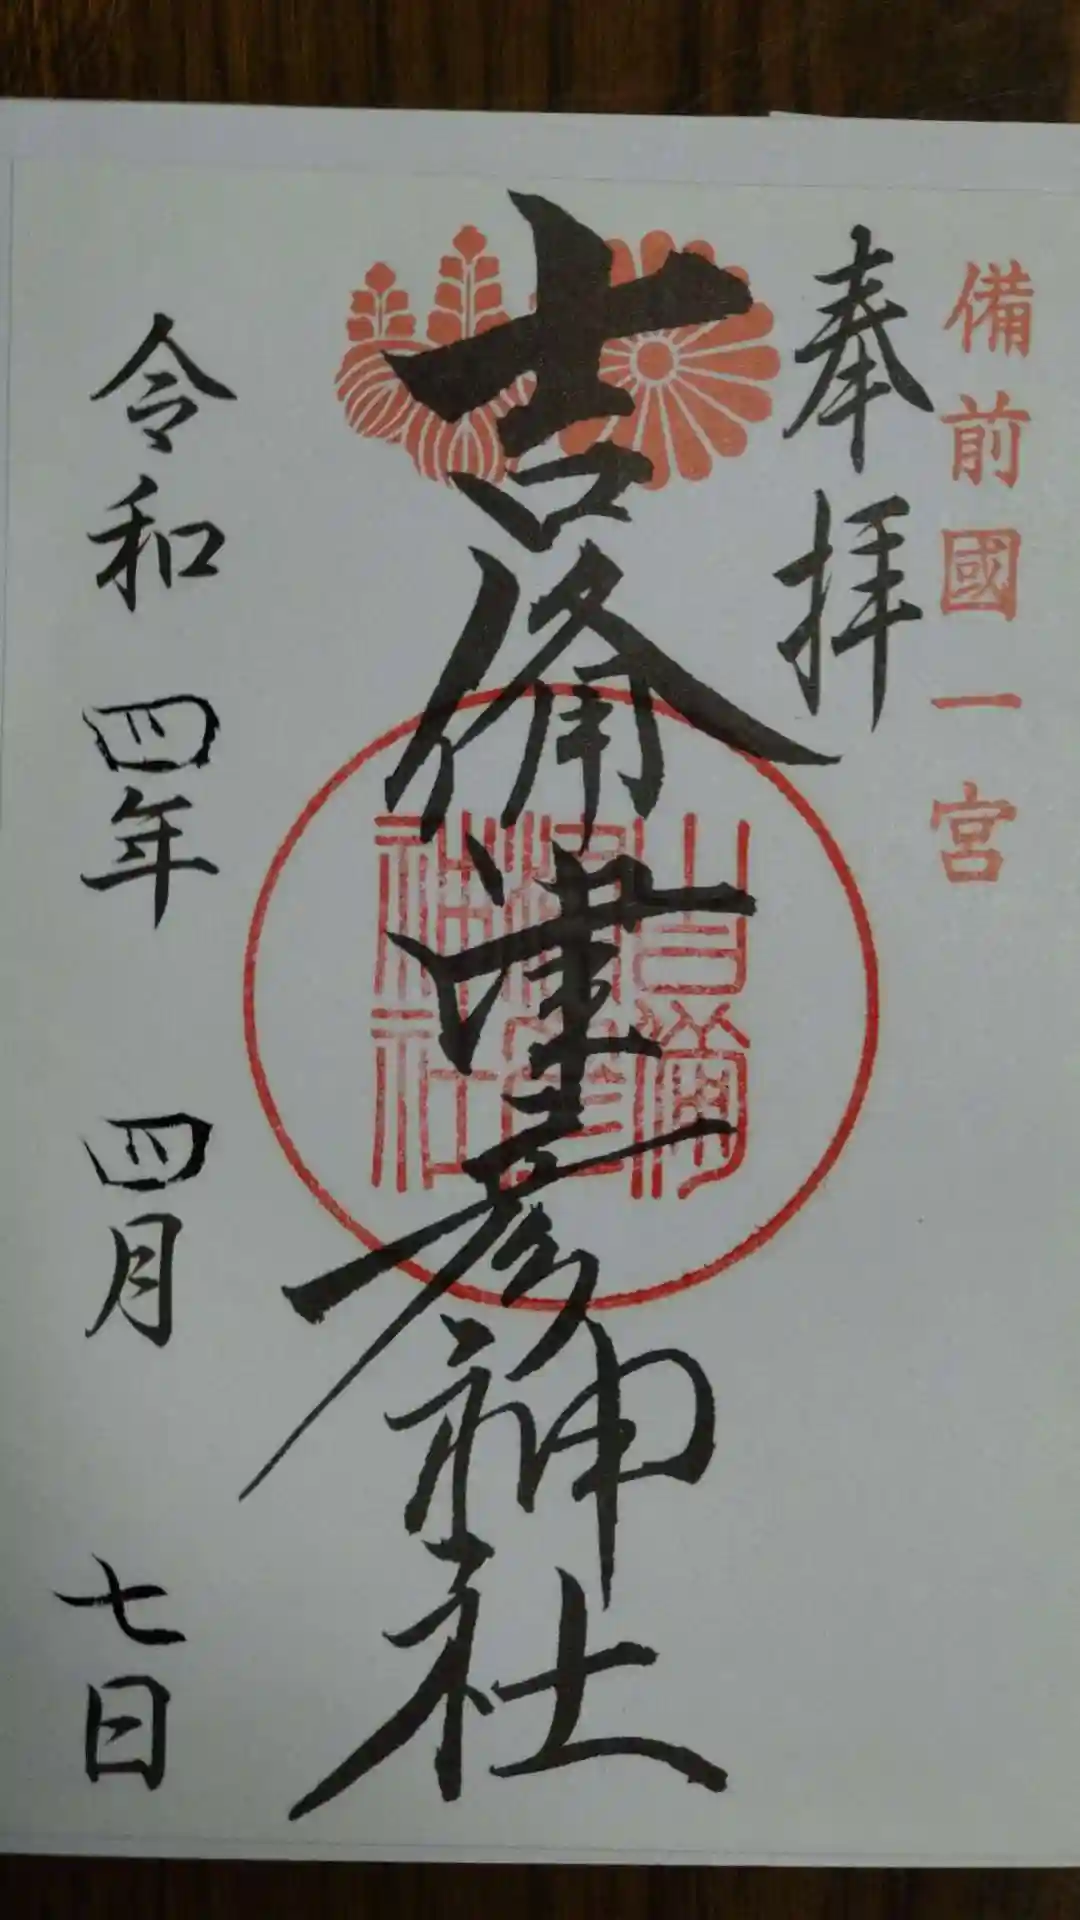 備前國一宮
奉拝
吉備津彦神社
吉備
津彦
神社
令和四年四月七日